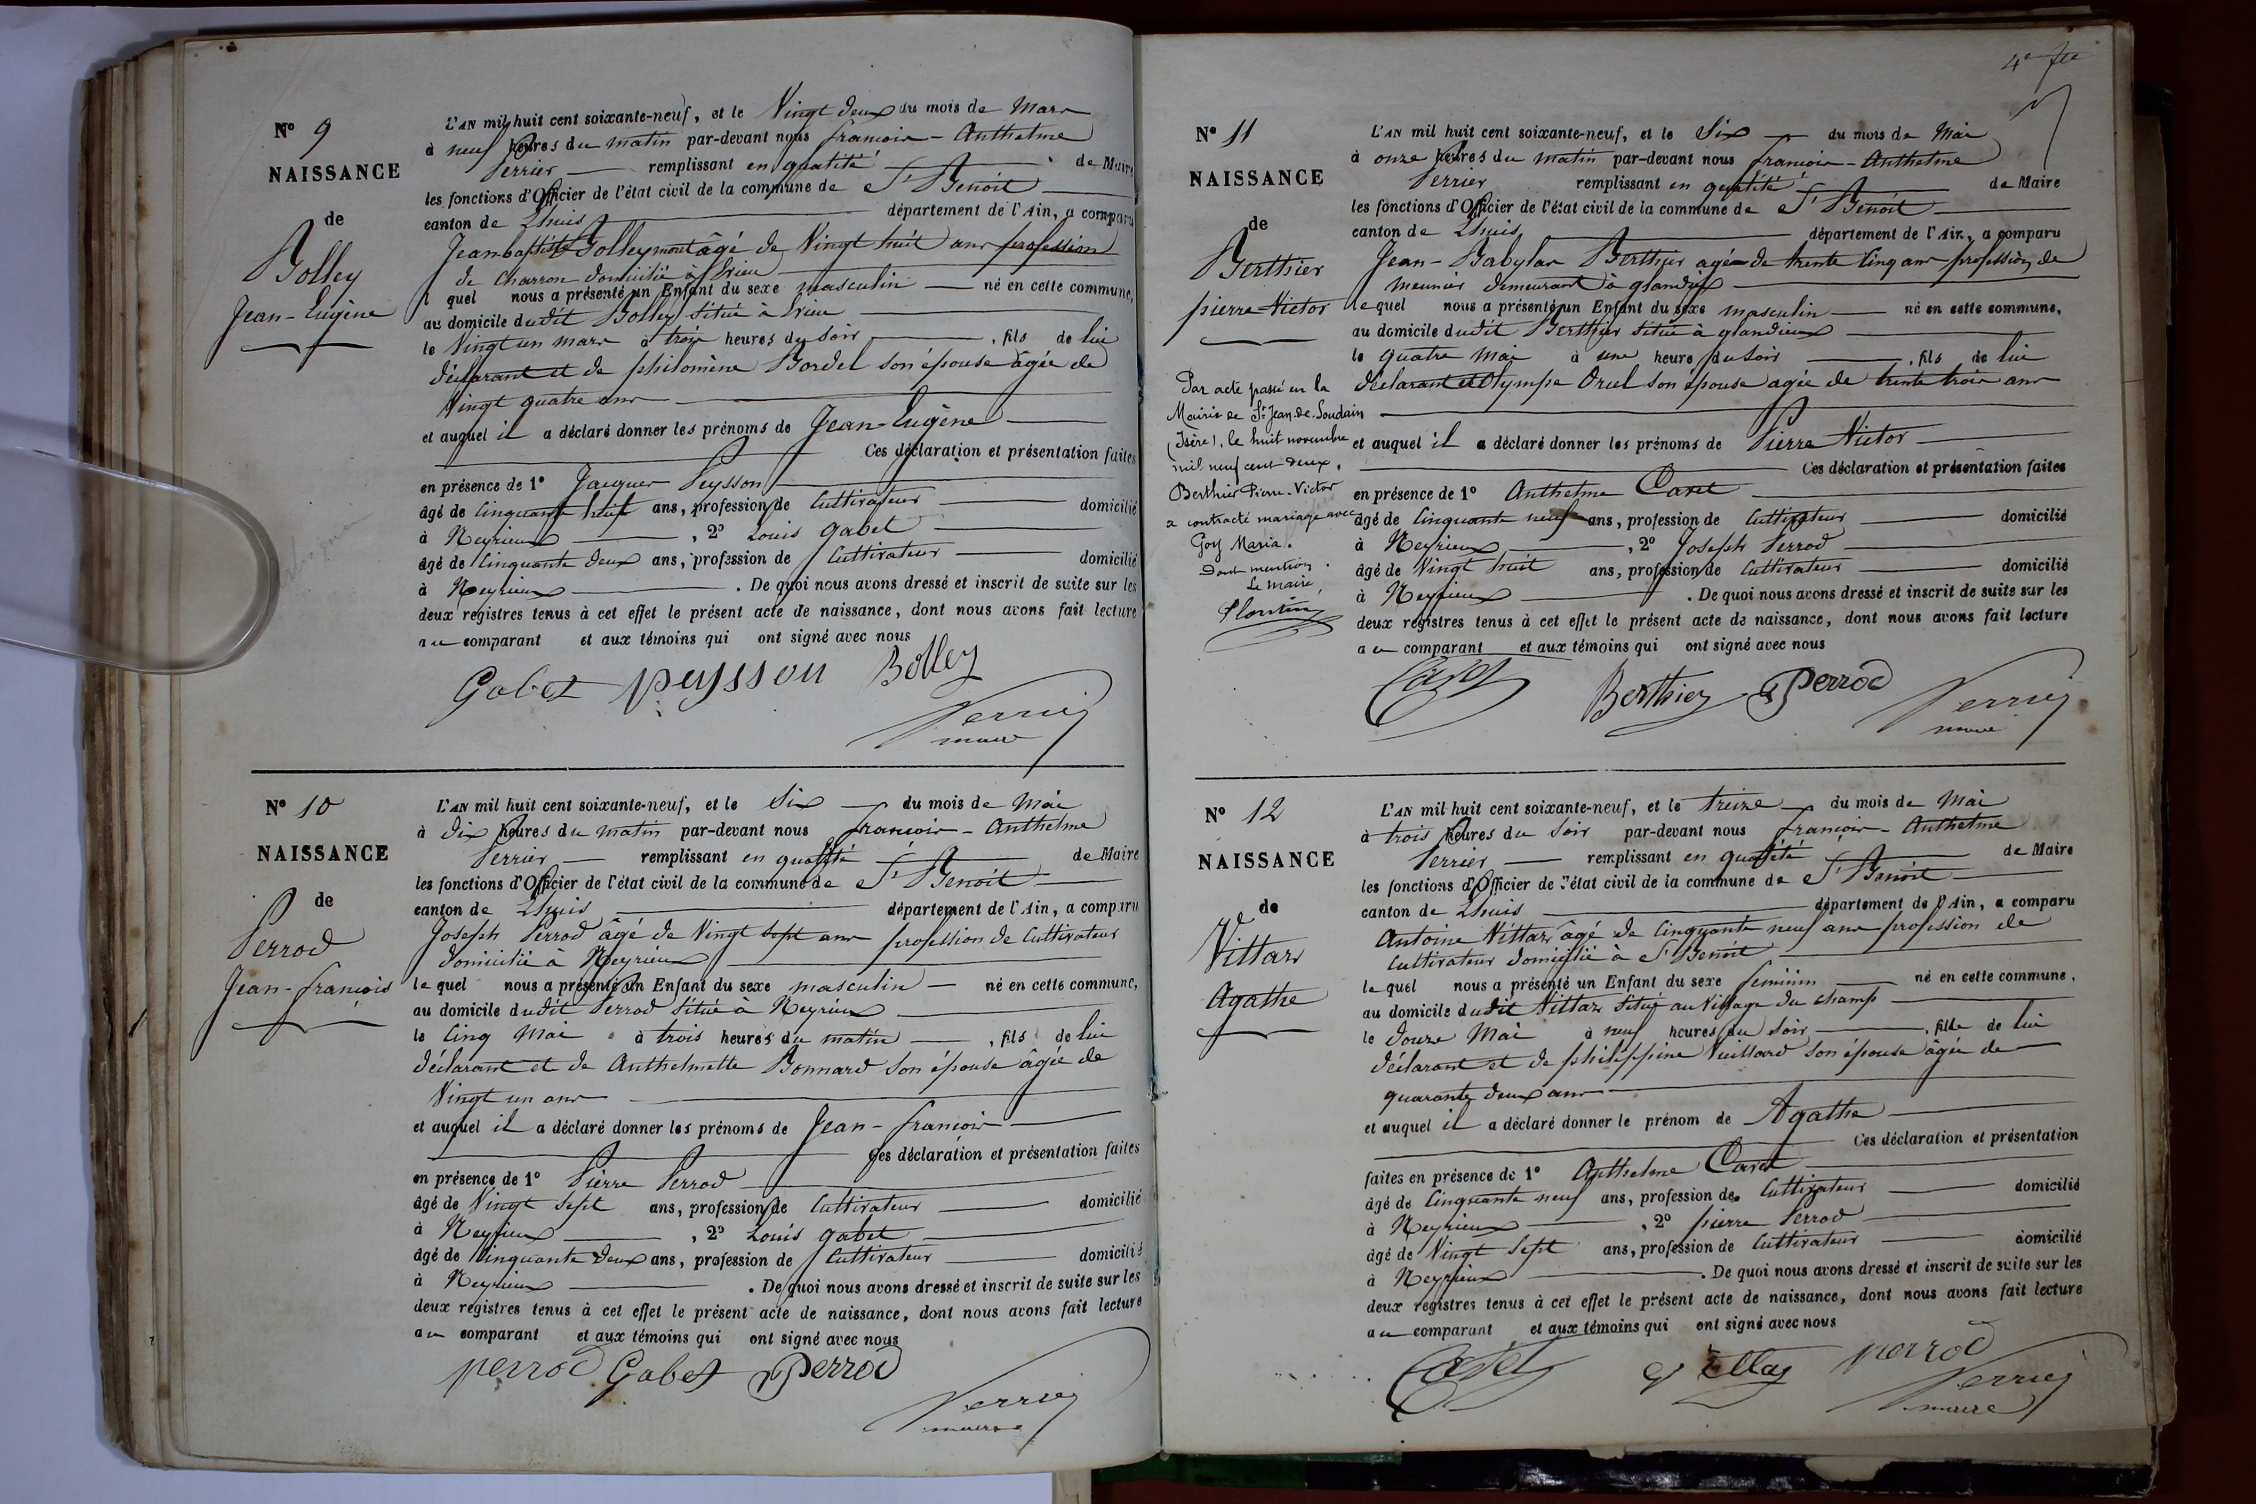 Nº 9
NAISSANCE
de
Bolley
Jean-Eugène
L'AN mil huit cent soixante-neuf, et le Vingt deux du mois de Mars
à neuf heures du matin par-devant nous françois-Anthelme
Perrier remplissant en qualité de Maire
les fonctions d'Officier de l'état civil de la commune de St Benoît
canton de Lhuis département de l'Ain, a comparu
Jean baptiste Bolleymont âgé de Vingt huit ans profession
de charron domicilié à
le quel nous a présenté un Enfant du sexe masculin né en cette commune,
au domicile dudit Bolley situé à
le Vingt un mars à trois heures du soir, fils de lui
déclarant et de philomène Bordel son épouse âgée de
Vingt quatre ans
et auquel il a déclaré donner les prénoms de Jean-Eugène
Ces déclaration et présentation faites
en présence de 1º Jacques Peysson
âgé de Cinquante huit ans, profession de Cultivateur domicilié
à Neyrieux, 2º Louis gabet
âgé de Cinquante Deux ans, profession de Cultivateur domicilié
à Neyrieux. De quoi nous avons dressé et inscrit de suite sur les
deux registres tenus à cet effet le présent acte de naissance, dont nous avons fait lecture
au comparant et aux témoins qui ont signé avec nous
Gabet peysson Bolley
Perrier
maire
Nº 10
NAISSANCE
de
Perrod
Jean-françois
L'AN mil huit cent soixante-neuf, et le Six du mois de Mai
à Dix heures du matin par-devant nous françois-Anthelme
Perrier remplissant en qualité de Maire
les fonctions d'Officier de l'état civil de la commune de St Benoît
canton de Lhuis département de l'Ain, a comparu
Joseph Perrod âgé de Vingt sept ans profession de Cultivateur
domicilié à Neyrieux
le quel nous a présenté un Enfant du sexe masculin né en cette commune,
au domicile dudit Perrod situé à Neyrieux
le Cinq Mai à trois heures du matin, fils de lui
déclarant et de Anthelmette Bonnard son épouse âgée de
Vingt un ans
et auquel il a déclaré donner les prénoms de Jean-françois
Ces déclaration et présentation faites
en présence de 1º Pierre Perrod
âgé de Vingt sept ans, profession de Cultivateur domicilié
à Neyrieux, 2º Louis gabet
âgé de Cinquante Deux ans, profession de Cultivateur domicilié
à Neyrieux. De quoi nous avons dressé et inscrit de suite sur les
deux registres tenus à cet effet le présent acte de naissance, dont nous avons fait lecture
au comparant et aux témoins qui ont signé avec nous
perrod Gabet Perrod
Perrier
maire
4e fte
Nº 11
NAISSANCE
de
Berthier
pierre-Victor
Par acte passé en la
Mairie de St Jean-de-Soudain
(Isère), le huit novembre
mil neuf cent deux,
Berthier Pierre-Victor
a contracté mariage avec
Goy Maria.
Dont mention.
Le maire,
L'AN mil huit cent soixante-neuf, et le Six du mois de Mai
à onze heures du matin par-devant nous françois-Anthelme
Perrier remplissant en qualité de Maire
les fonctions d'Officier de l'état civil de la commune de St Benoît
canton de Lhuis département de l'Ain, a comparu
Jean-Babylas Berthier agée de trente Cinq ans profession de
meunier demeurant à glandieux
le quel nous a présenté un Enfant du sexe masculin né en cette commune,
au domicile dudit Berthier situé à glandieux
le quatre Mai à une heure du Soir, fils de lui
déclarant et Olympe Oruel son épouse agée de trente trois ans
et auquel il a déclaré donner les prénoms de Pierre Victor
Ces déclaration et présentation faites
en présence de 1º Anthelme Caset
âgé de Cinquante neuf ans, profession de Cultivateur domicilié
à Neyrieux, 2º Joseph Perrod
âgé de Vingt huit ans, profession de Cultivateur domicilié
à Neyrieux. De quoi nous avons dressé et inscrit de suite sur les
deux registres tenus à cet effet le présent acte de naissance, dont nous avons fait lecture
au comparant et aux témoins qui ont signé avec nous
Caset Berthier Perrod
Perrier
maire
Nº 12
NAISSANCE
de
Vittaz
Agathe
L'AN mil huit cent soixante-neuf, et le treize du mois de Mai
à trois heures du Soir par-devant nous françois-Anthelme
Perrier remplissant en qualité de Maire
les fonctions d'Officier de l'état civil de la commune de St Benoît
canton de Lhuis département de l'Ain, a comparu
Antoine Vittaz âgé de Cinquante neuf ans profession de
Cultivateur domicilié à St Benoît
le quel nous a présenté un Enfant du sexe féminin né en cette commune,
au domicile dudit Vittaz situé au Village du champ
le Douze Mai à neuf heures du Soir, fille de lui
déclarant et de philippine Vuillard son épouse âgée de
quarante deux ans
et auquel il a déclaré donner le prénom de Agathe
Ces déclaration et présentation
faites en présence de 1º Anthelme Caset
âgé de Cinquante neuf ans, profession de Cultivateur domicilié
à Neyrieux, 2º pierre Perrod
âgé de Vingt sept ans, profession de Cultivateur domicilié
à Neyrieux. De quoi nous avons dressé et inscrit de suite sur les
deux registres tenus à cet effet le présent acte de naissance, dont nous avons fait lecture
au comparant et aux témoins qui ont signé avec nous
Caset perrod
Perrier
maire